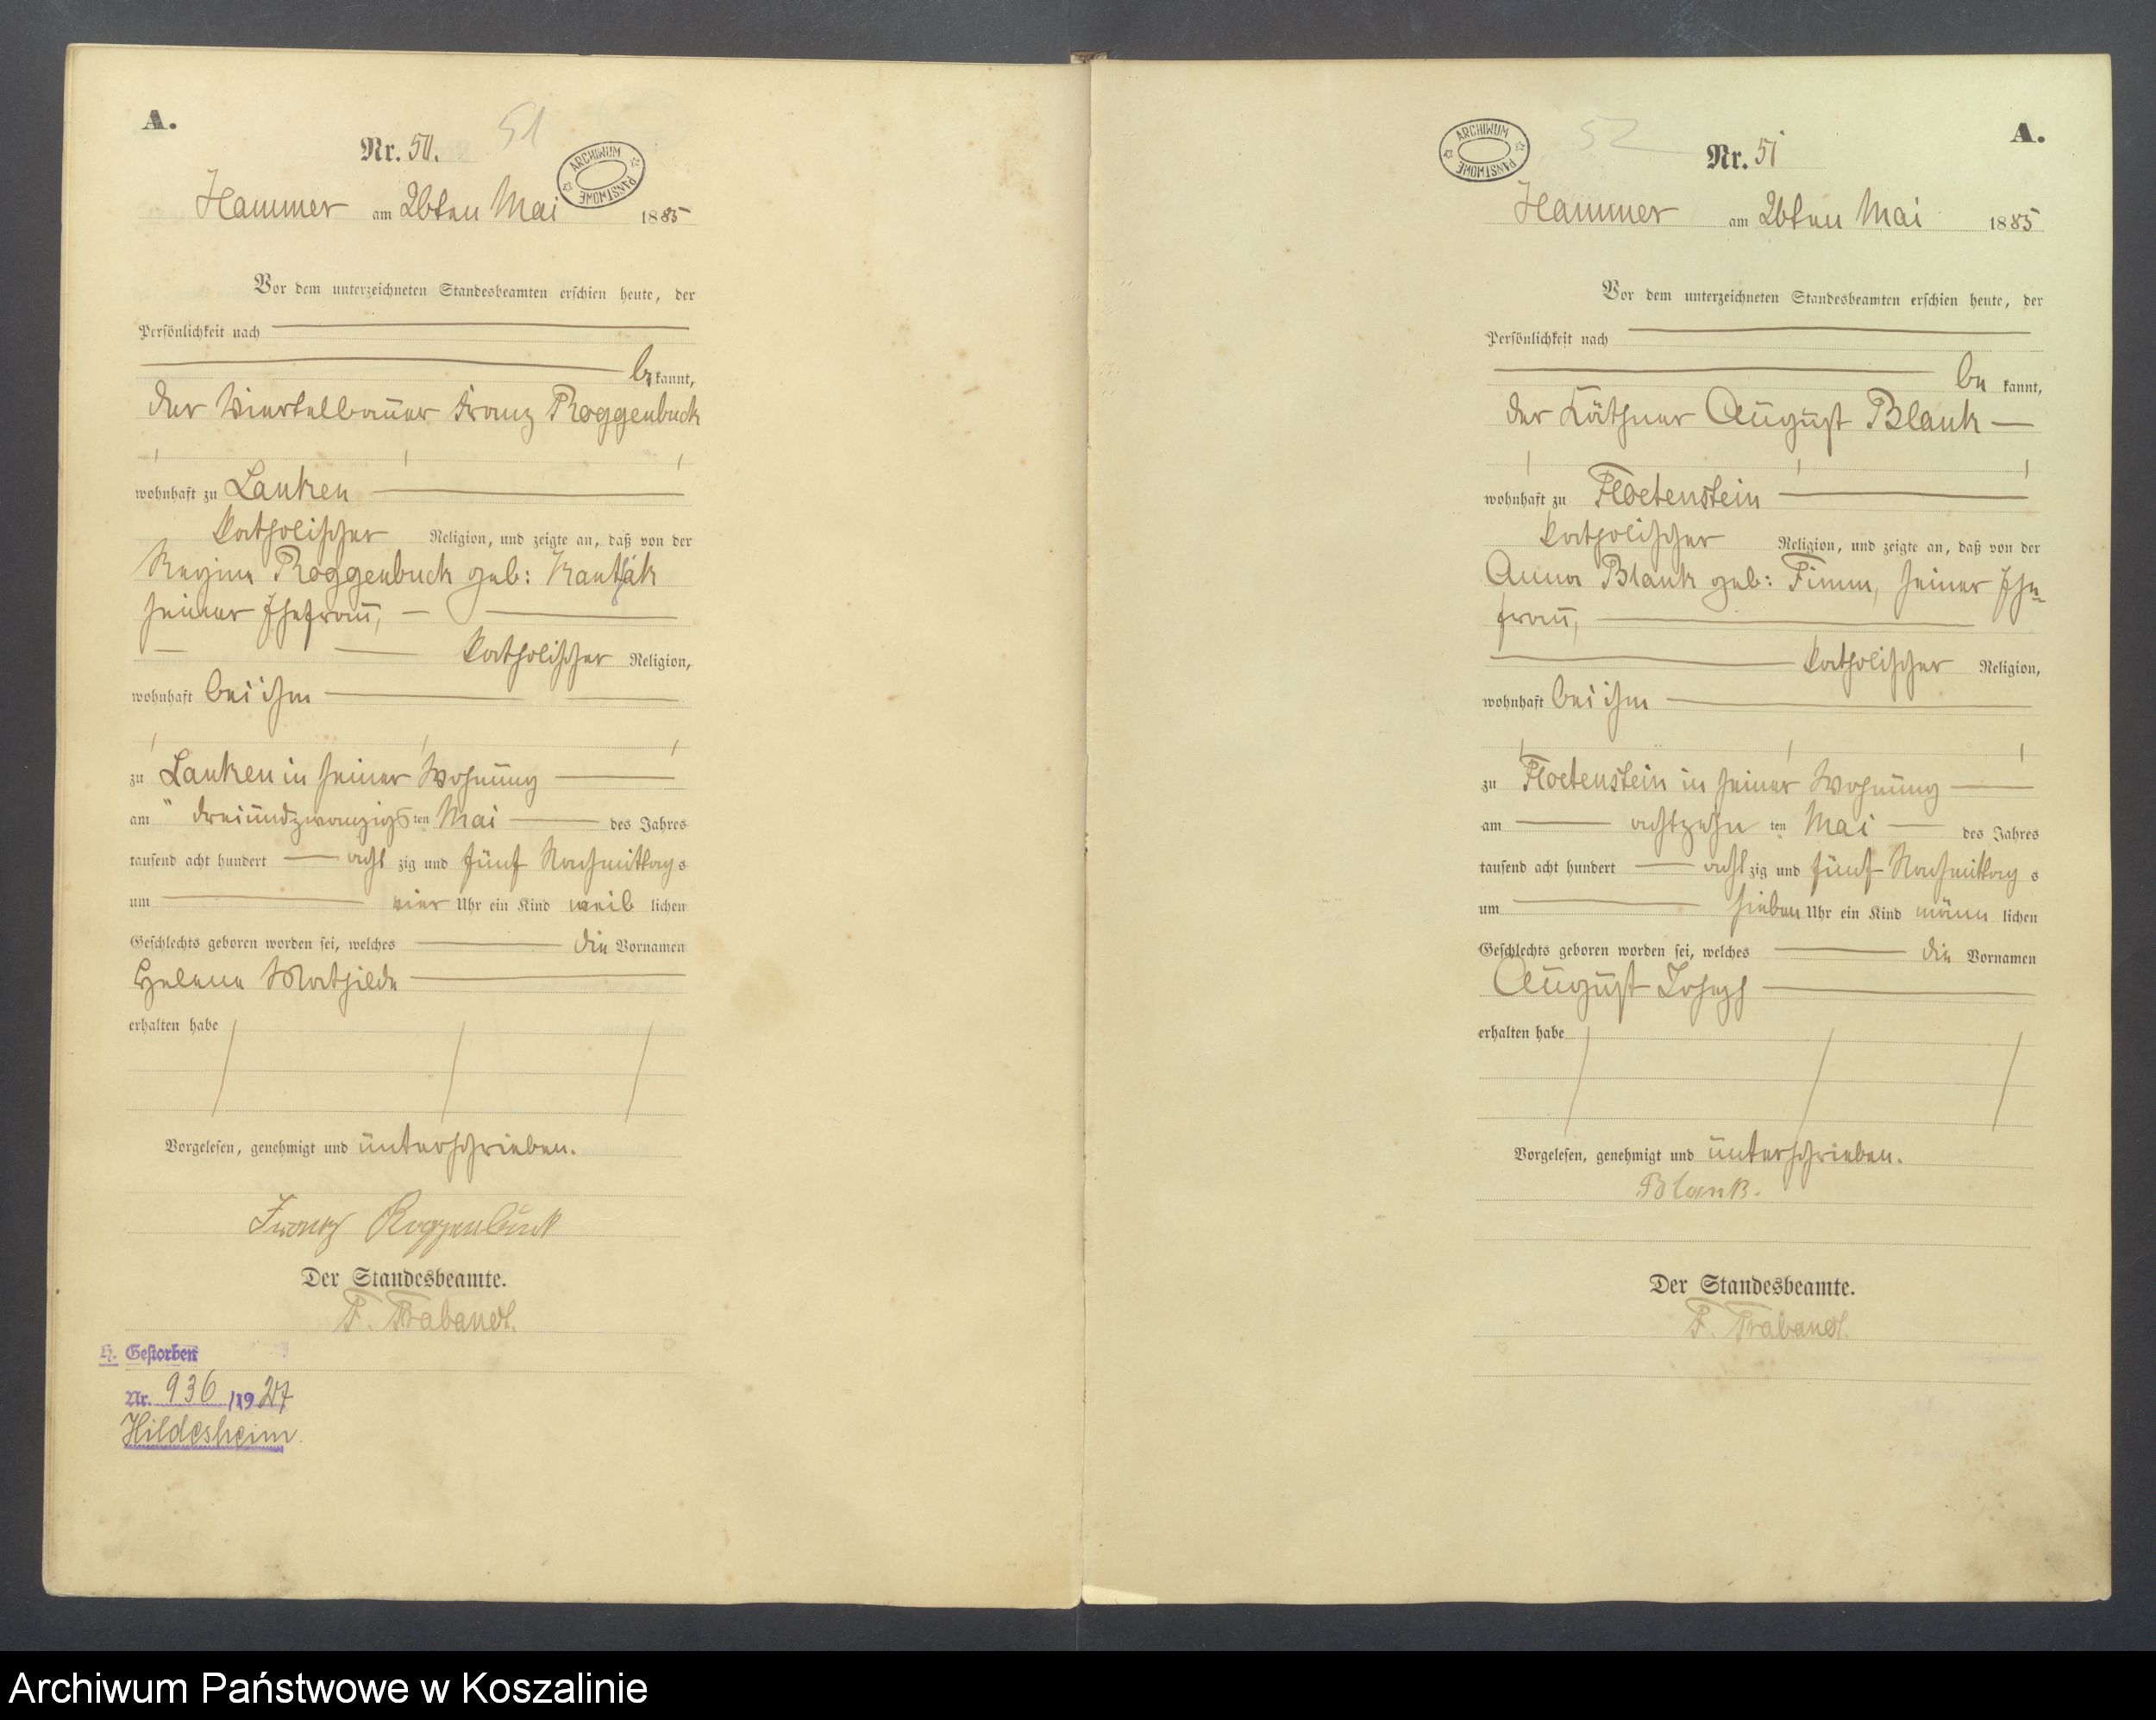 A.
Nr. 50.
51
ARCHIWUM PAŃSTWOWE
Hammer am 26ten Mai 1885
Vor dem unterzeichneten Standesbeamten erschien heute, der
Persönlichkeit nach
be kannt,
der Viertelbauer Franz Roggenbuck
wohnhaft zu Lanken
katholischer Religion, und zeigte an, daß von der
Regine Roggenbuck geb:
seiner Ehefrau,
katholischer Religion,
wohnhaft bei ihm
zu Lanken in seiner Wohnung
am dreiundzwanzigsten Mai des Jahres
tausend acht hundert acht zig und fünf Nachmittags
um vier Uhr ein Kind weib lichen
Geschlechts geboren worden sei, welches die Vornamen
Helene Mathilde
erhalten habe
Vorgelesen, genehmigt und unterschrieben.
Franz Roggenbuck
Der Standesbeamte.
F. Brabandt.
H. Gestorben
Nr. 936 /1927
Hildesheim.
A.
52
ARCHIWUM PAŃSTWOWE
Nr. 51
Hammer am 26ten Mai 1885
Vor dem unterzeichneten Standesbeamten erschien heute, der
Persönlichkeit nach
be kannt,
der Käthner August Blank
wohnhaft zu Floetenstein
katholischer Religion, und zeigte an, daß von der
Anna Blank geb: Timm, seiner Ehe-
frau,
katholischer Religion,
wohnhaft bei ihm
zu Floetenstein in seiner Wohnung
am achtzehn ten Mai des Jahres
tausend acht hundert acht zig und fünf Nachmittag s
um sieben Uhr ein Kind männ lichen
Geschlechts geboren worden sei, welches die Vornamen
August Joseph
erhalten habe
Vorgelesen, genehmigt und unterschrieben.
Blank.
Der Standesbeamte.
F. Brabandt.
Archiwum Państwowe w Koszalinie